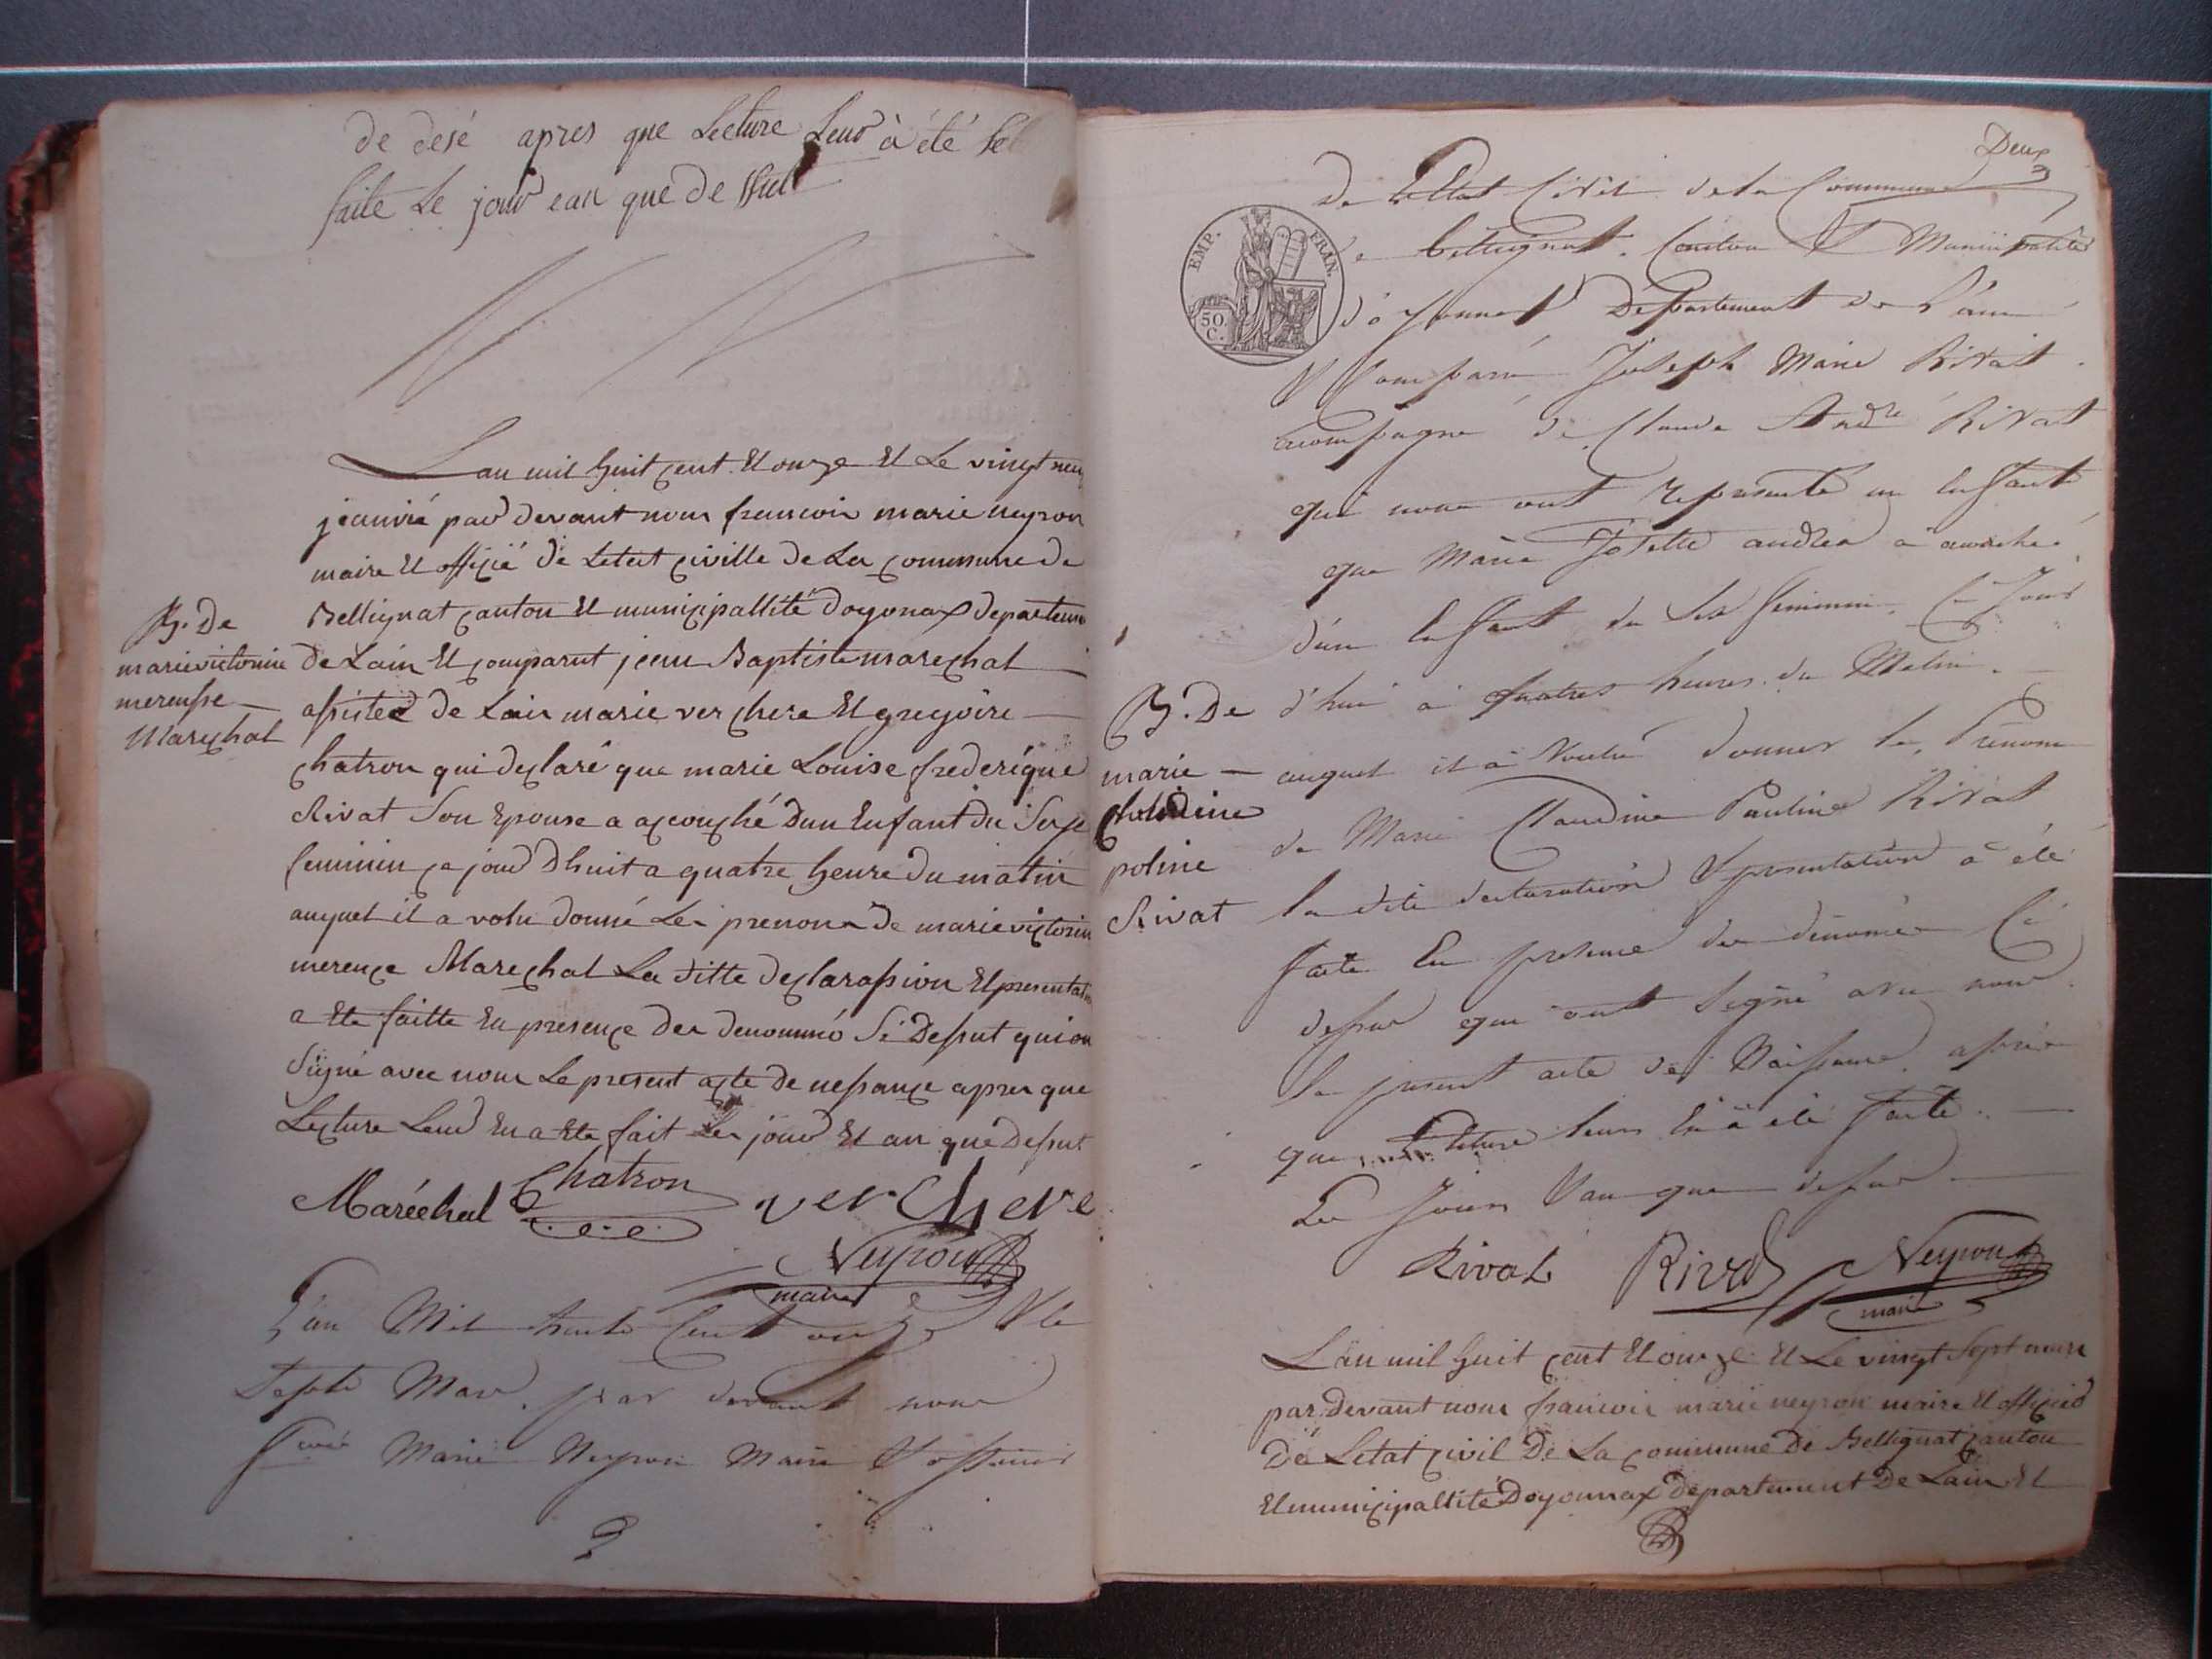 de desé apres que Lecture Leur à été
faite Le jour ean que de
Lan mil huit cent Et onze Et Le vingt neu
jeanvié par devant nous francois marie neyron
maire Et offigié de Letat civille de La commune de
Bellignat canton Et municipallité doyonax departeme
B. De
marie victorine
mereusse
Marechal
de Lain Et comparut jean Baptiste marechal
assisted de Lain marie verchere Et gregoire
chatron qui declaré que marie Louise frederique
Rivat Son Epouse a acouché Dun Enfant Du Sexe
feminin ce jour Dhuit a quatre heure Du matin
auquel il a volu donné Les prenons de marie victorin
merence Marechal La ditte declarassion Et presentat
a Ete faitte En presence des denommés Si Dessut qui on
Signé avec nous Le present acte de nessance apres que
Lecture Leur En a Ete fait Les jour Et an que Dessut
Maréchal Chatron verchere
Neyron
maire
L'an Mil huit Cent onze & le
Septe Mars par devant nous
Marie Neyron Maire & officier
Deux
EMP. FRAN.
50. C.
De l'Etat Civil de la Commune
de Bellignat. Canton & Municipalité
d'oyonnax Département de l'ain
& Comparu Joseph Marie Rivat
acompagné de Claude André Rivat
qui nous ont représenté un Enfant
que Marie Josette andréa a acouché
d'un Enfant du Sex féminin. Ce Jour
B. De
marie
Claudine
poline
Rivat
d'hui à quatres heures du Matin.
auquel il à Voulu donner le Prénom
de Marie Claudine Pauline Rivat
la dite declaration & présentation à été
faite En présence des dénomés Ci
dessus qui ont Signé avec nous
le present acte de Naissance. après
que Lecture leurs En à été faite.
Les Jours & an que dessus
Rivat Rivat Neyron
maire
Lan mil huit cent Et onze Et Le vingt Sept mars
par devant nous francois marie neyron maire Et officied
De Letat civil De La commune de Bellignat canton
Et municipallité Doyonnax departement De Lain Et